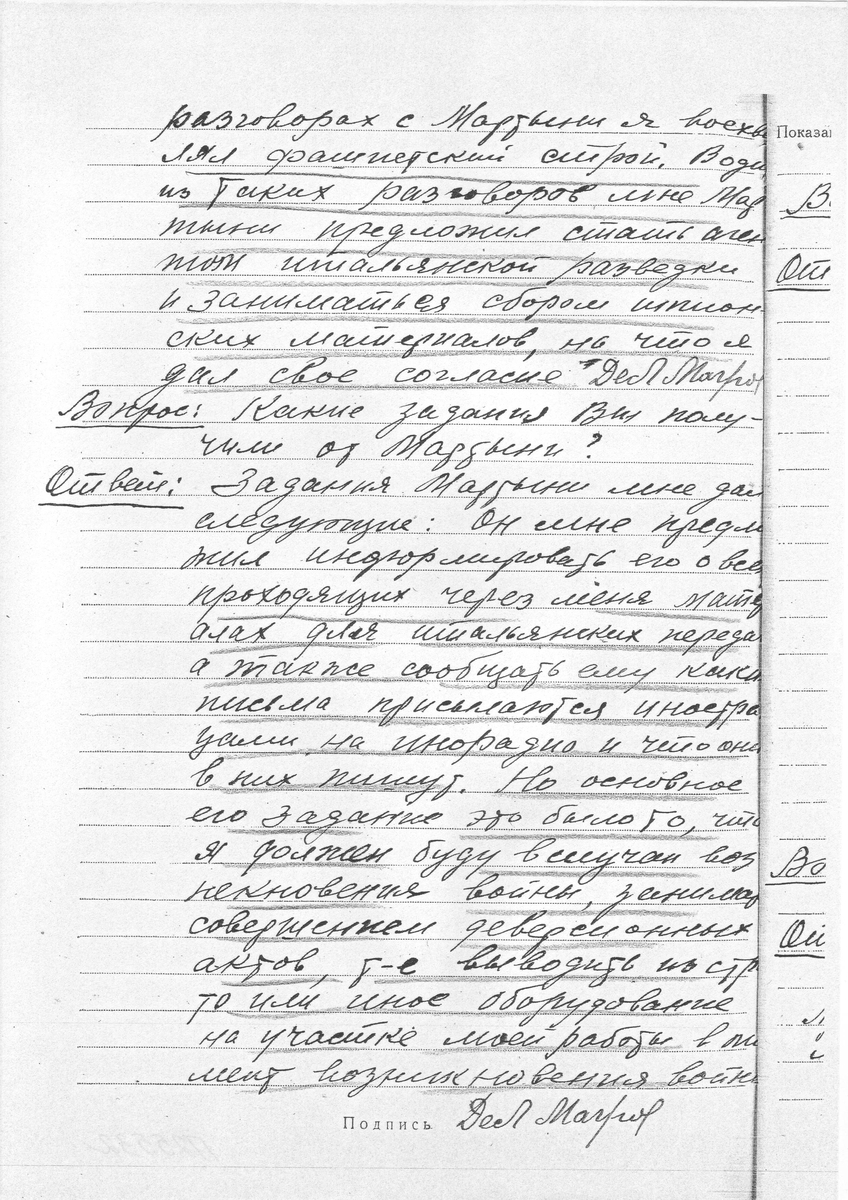 разговорах с Мартыни я восхв
Показа
лял фашистский строй. В одн
из таких разговоров мне Мар
В
тыни предложил стать аген
том итальянской разведки
От
и заниматься сбором шпион-
ских материалов, на что я
дал свое согласие Дел Магро
Вопрос: Какие задания Вы полу-
чили от Мартыни?
Ответ: Задания Мартыни мне дал
следующие: Он мне предло
жил информировать его о все
проходящих через меня мате
алах для итальянских переда
а также сообщать ему каки
письма присылаются иностра
цами на инорадио и что они
в них пишут. Но основное
его задание это было то, что
я должен буду в случаи воз
Во
некновения войны, занимат
совершением деверсионных
От
актов, т-е выводить из стр
то или иное оборудование
на участке моей работы в мо
мент возникновения войны
Подпись Дел Магро